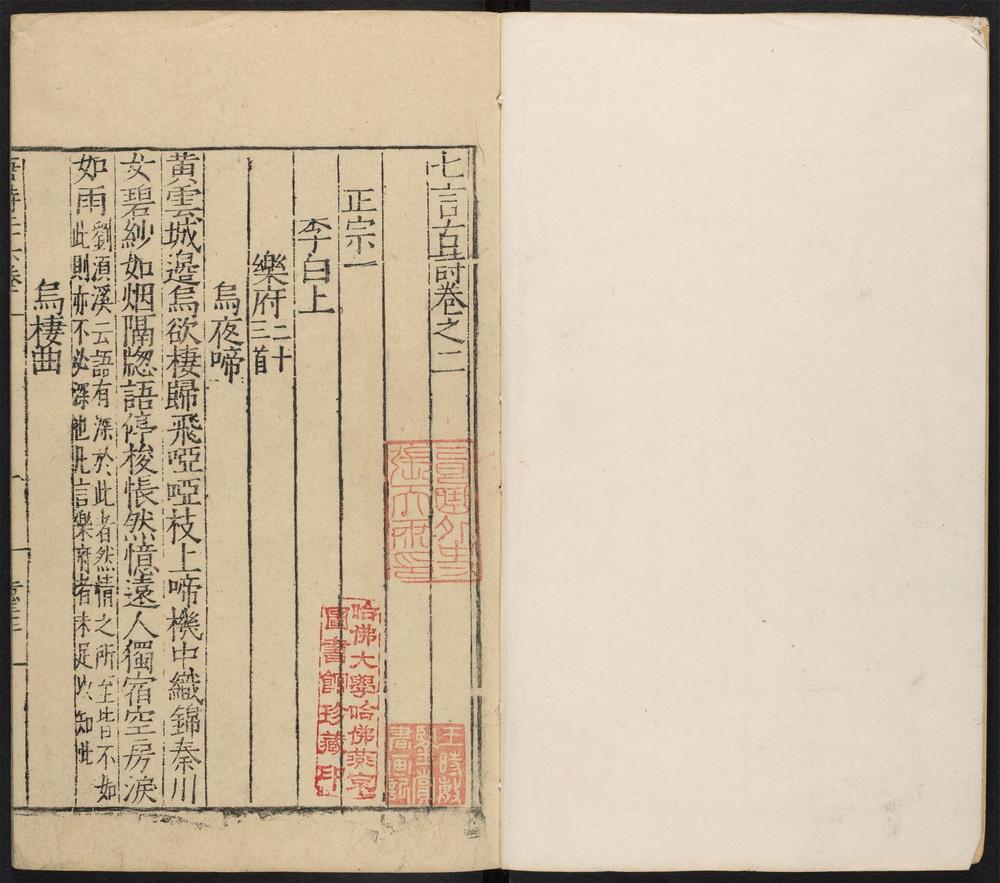 七言古詩卷之二
正宗一
李白上
樂府二十三首
烏夜啼
黃雲城邊烏欲棲歸飛啞啞枝上啼機中織錦秦川
女碧紗如烟隔牕語停梭悵然憶遠人獨宿空房淚
如雨劉須溪云語有深於此者然情之所至皆不如
此則亦不必深也凡言樂府者未足以知此
烏棲曲
哈佛大學哈佛燕京
圖書館珍藏印
王時敏
書画記